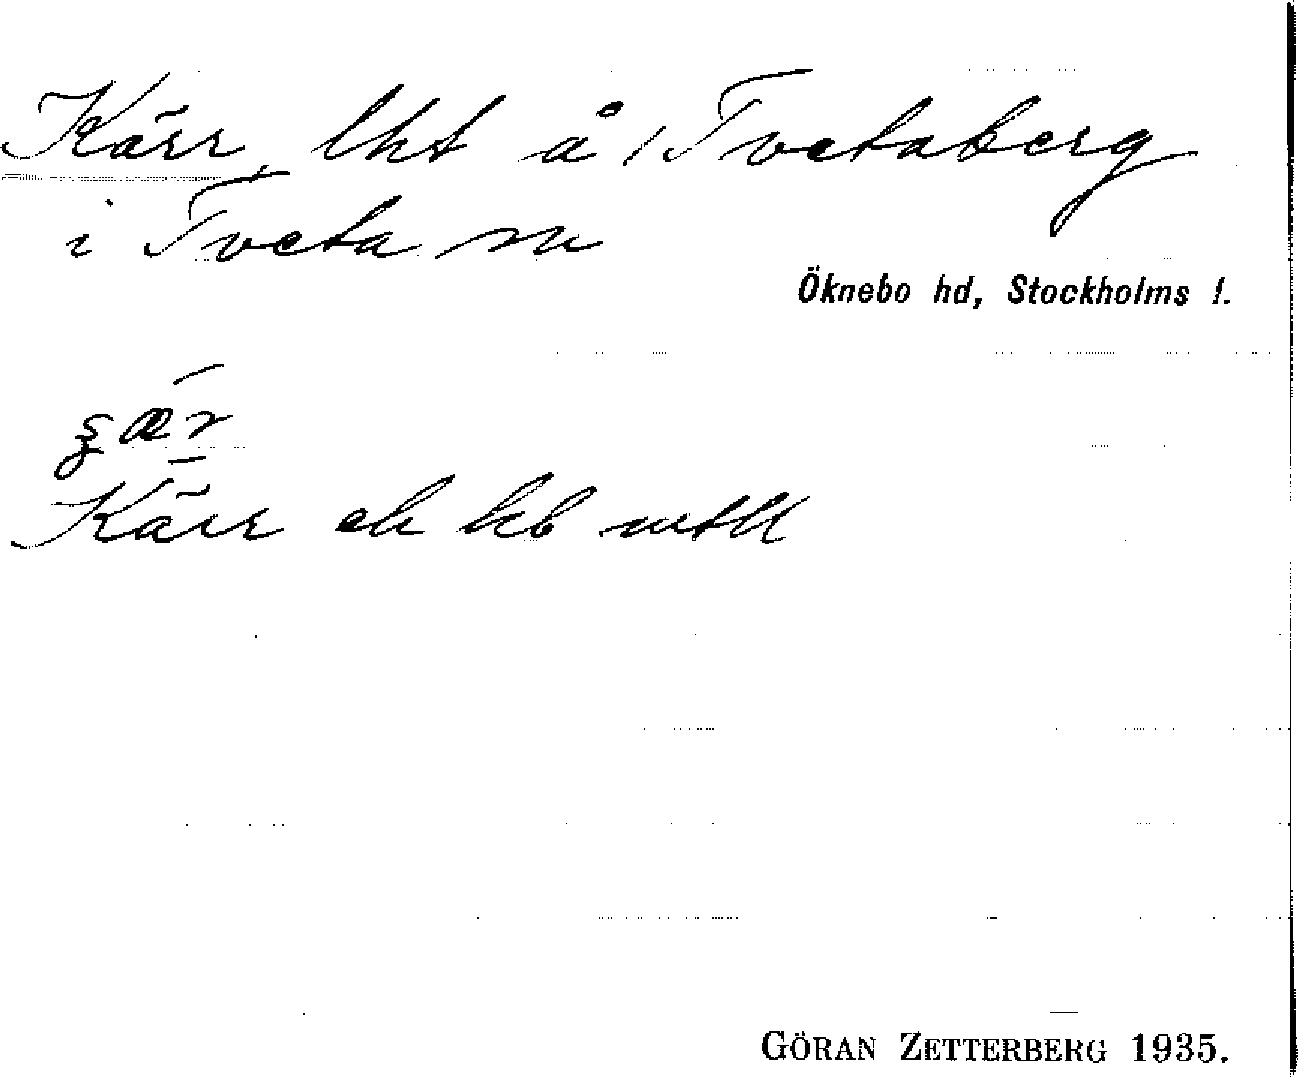 Kärr, lht å Tvetaberg
i Tveta sn
Öknebo hd, Stockholms l.
Kärr ek kb mtll
GÖRAN ZETTERBERG 1935.